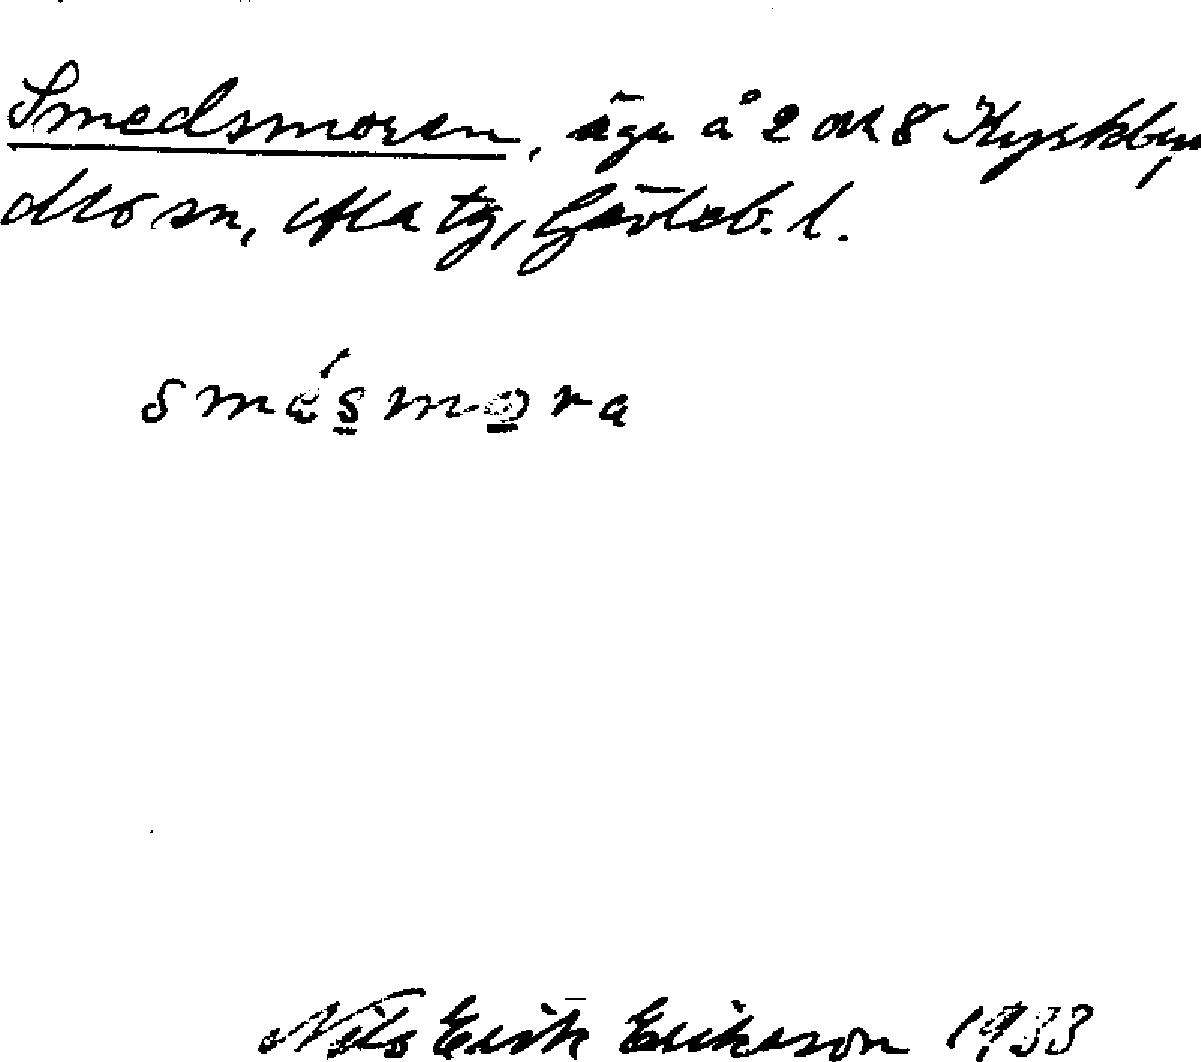 Smedsmoren, ägr å 2 och 8 Kyrkbyn
Mo sn, Ala tg, Gävleb. l.
smésmora
Nils Erik Erikson 1933